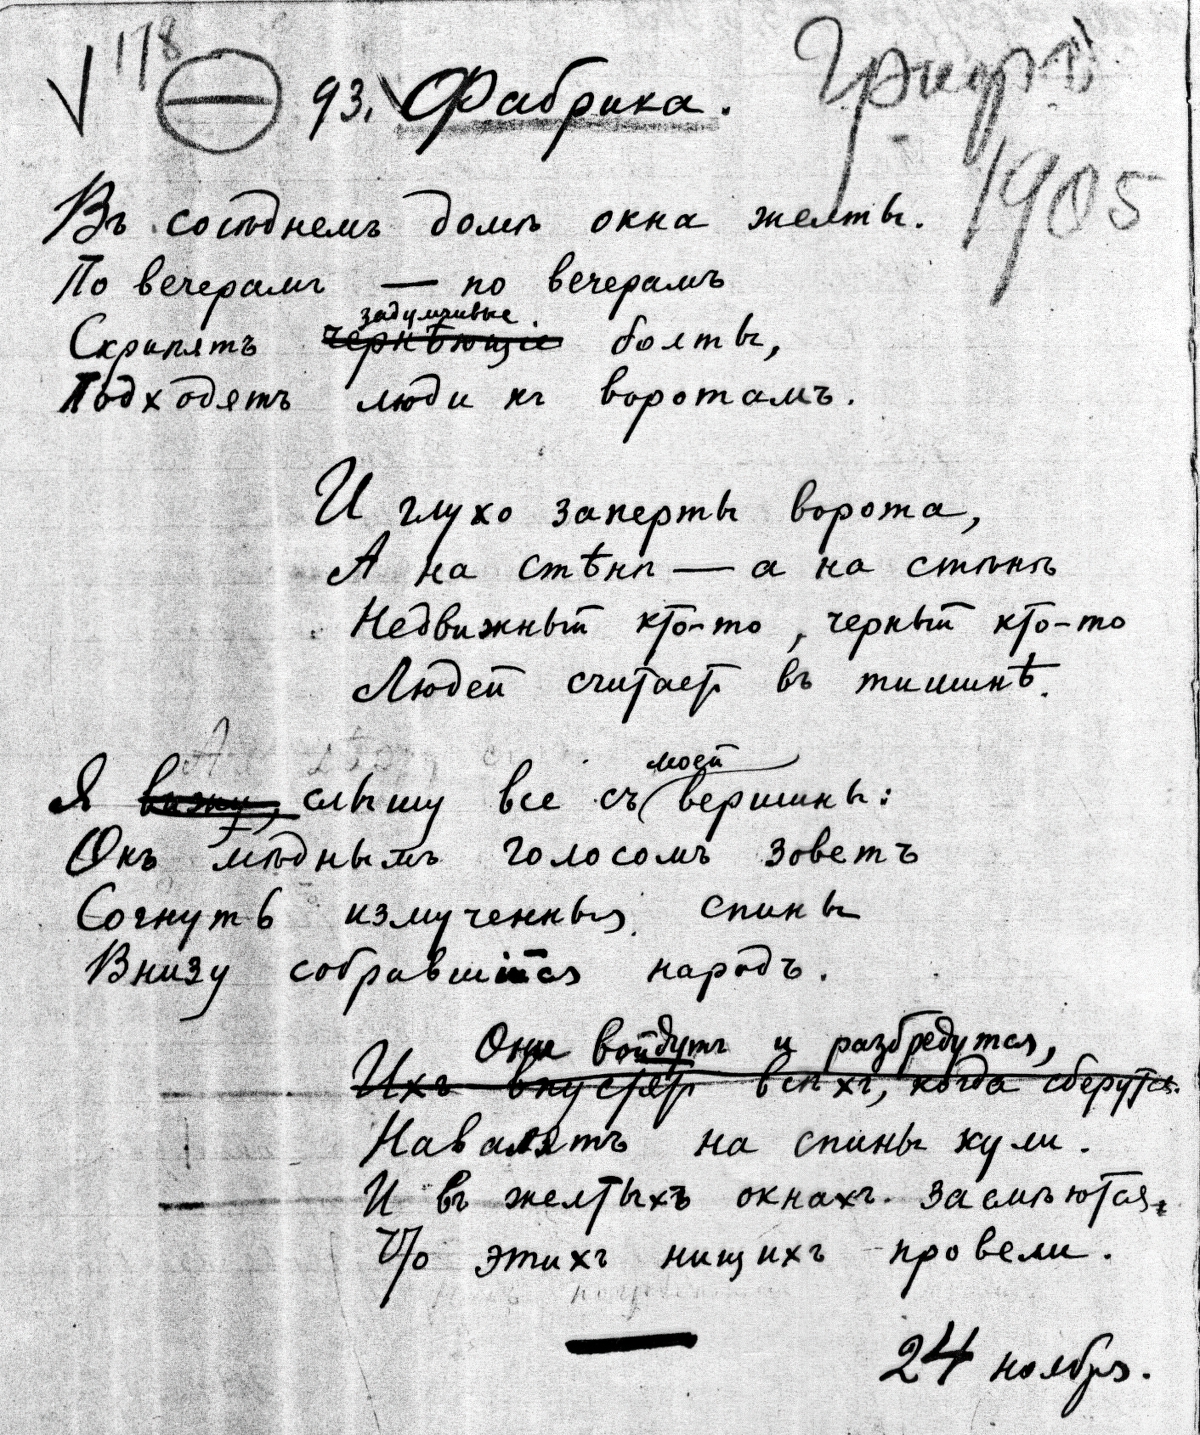 178
93. Фабрика.
1905
Въ сосѣднемъ домѣ окна желты.
По вечерамъ — по вечерамъ
задумчивые
Скрипятъ чернѣющіе болты,
Подходятъ люди къ воротамъ.
И глухо заперты ворота,
А на стѣнѣ — а на стѣнѣ
Недвижный кто-то, черный кто-то
Людей считает въ тишинѣ.
моей
Я вижу, слышу все съ вершины:
Онъ мѣднымъ голосомъ зоветъ
Согнуть измученныя спины
Внизу собравшійся народъ.
Они войдутъ и разбредутся,
Ихъ впустят всѣхъ, когда сберутся.
Навалятъ на спины кули.
И въ желтыхъ окнахъ засмѣются,
Что этихъ нищихъ провели.
24 ноября.